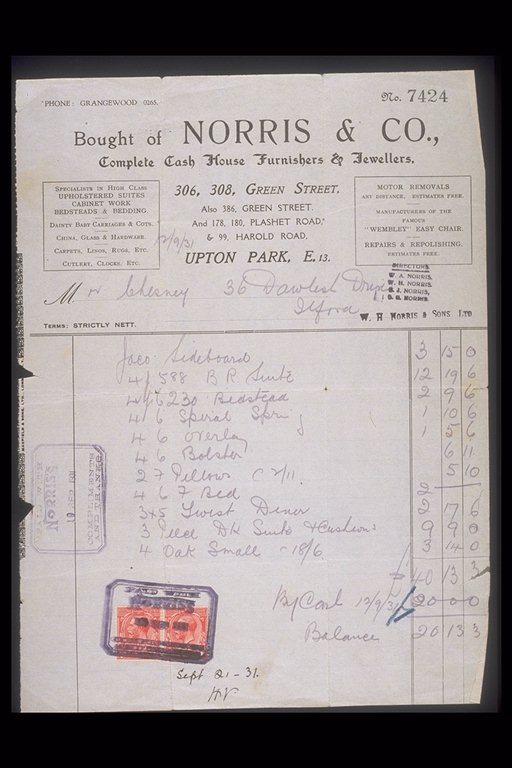 'PHONE: GRANGEWOOD 0265.
No. 7424
Bought of NORRIS & CO.,
Complete Cash House Furnishers & Jewellers.
SPECIALISTS IN HIGH CLASS
UPHOLSTERED SUITES
CABINET WORK
BEDSTEADS & BEDDING
DAINTY BABY CARRIAGES & COTS.
CHINA, GLASS & HARDWARE.
CARPETS, LINOS, RUGS, ETC.
CUTLERY, CLOCKS, ETC.
306, 308, GREEN STREET.
Also 386, GREEN STREET.
And 178, 180, PLASHET ROAD,
& 99, HAROLD ROAD,
UPTON PARK, E.13.
MOTOR REMOVALS
ANY DISTANCE. ESTIMATES FREE.
MANUFACTURERS OF THE
FAMOUS
"WEMBLEY" EASY CHAIR.
REPAIRS & REPOLISHING.
ESTIMATES FREE.
12/9/31
DIRECTORS
W. A. NORRIS.
W. H. NORRIS.
S. J. NORRIS.
S. G. NORRIS.
Mr Chesney 36 Dawlish Drive
Ilford
W. H NORRIS & SONS LTD
TERMS: STRICTLY NETT.
Jaco Sideboard 3 15 0
4/ 588 B R Suite 12 19 6
4/6 230 Bedstead 2 9 6
4/6 Spiral Spring 1 10 6
4 6 Overlay 1 5 6
4 6 Bolster 6 11
2 Pillows 2/11. 5 10
4 6 Bed 2
3x5 Twist Diner 2 17 6
3 Piece DK Suite & Cushions 9 9 0
4 Oak Small 18/6 3 14 0
40 13 3
By Cash 12/9/31 20 0 0
Balance 20 13 3
NORRIS
Sept 21-31.